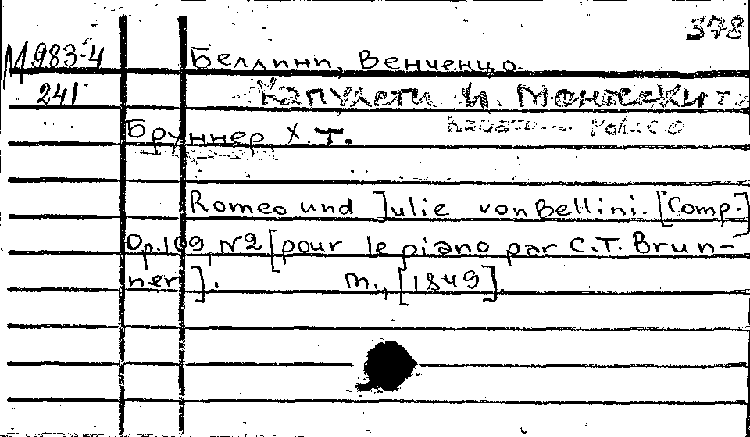 378
М 983-4
241
Беллини, Венченцо
Капулети и Монтекки
Бруннер Х. Т.
Romeo und Julie von Bellini. [Comp.]
Op. 109, N2 [pour le piano par C. T. Brun-
ner].   m., [1849].